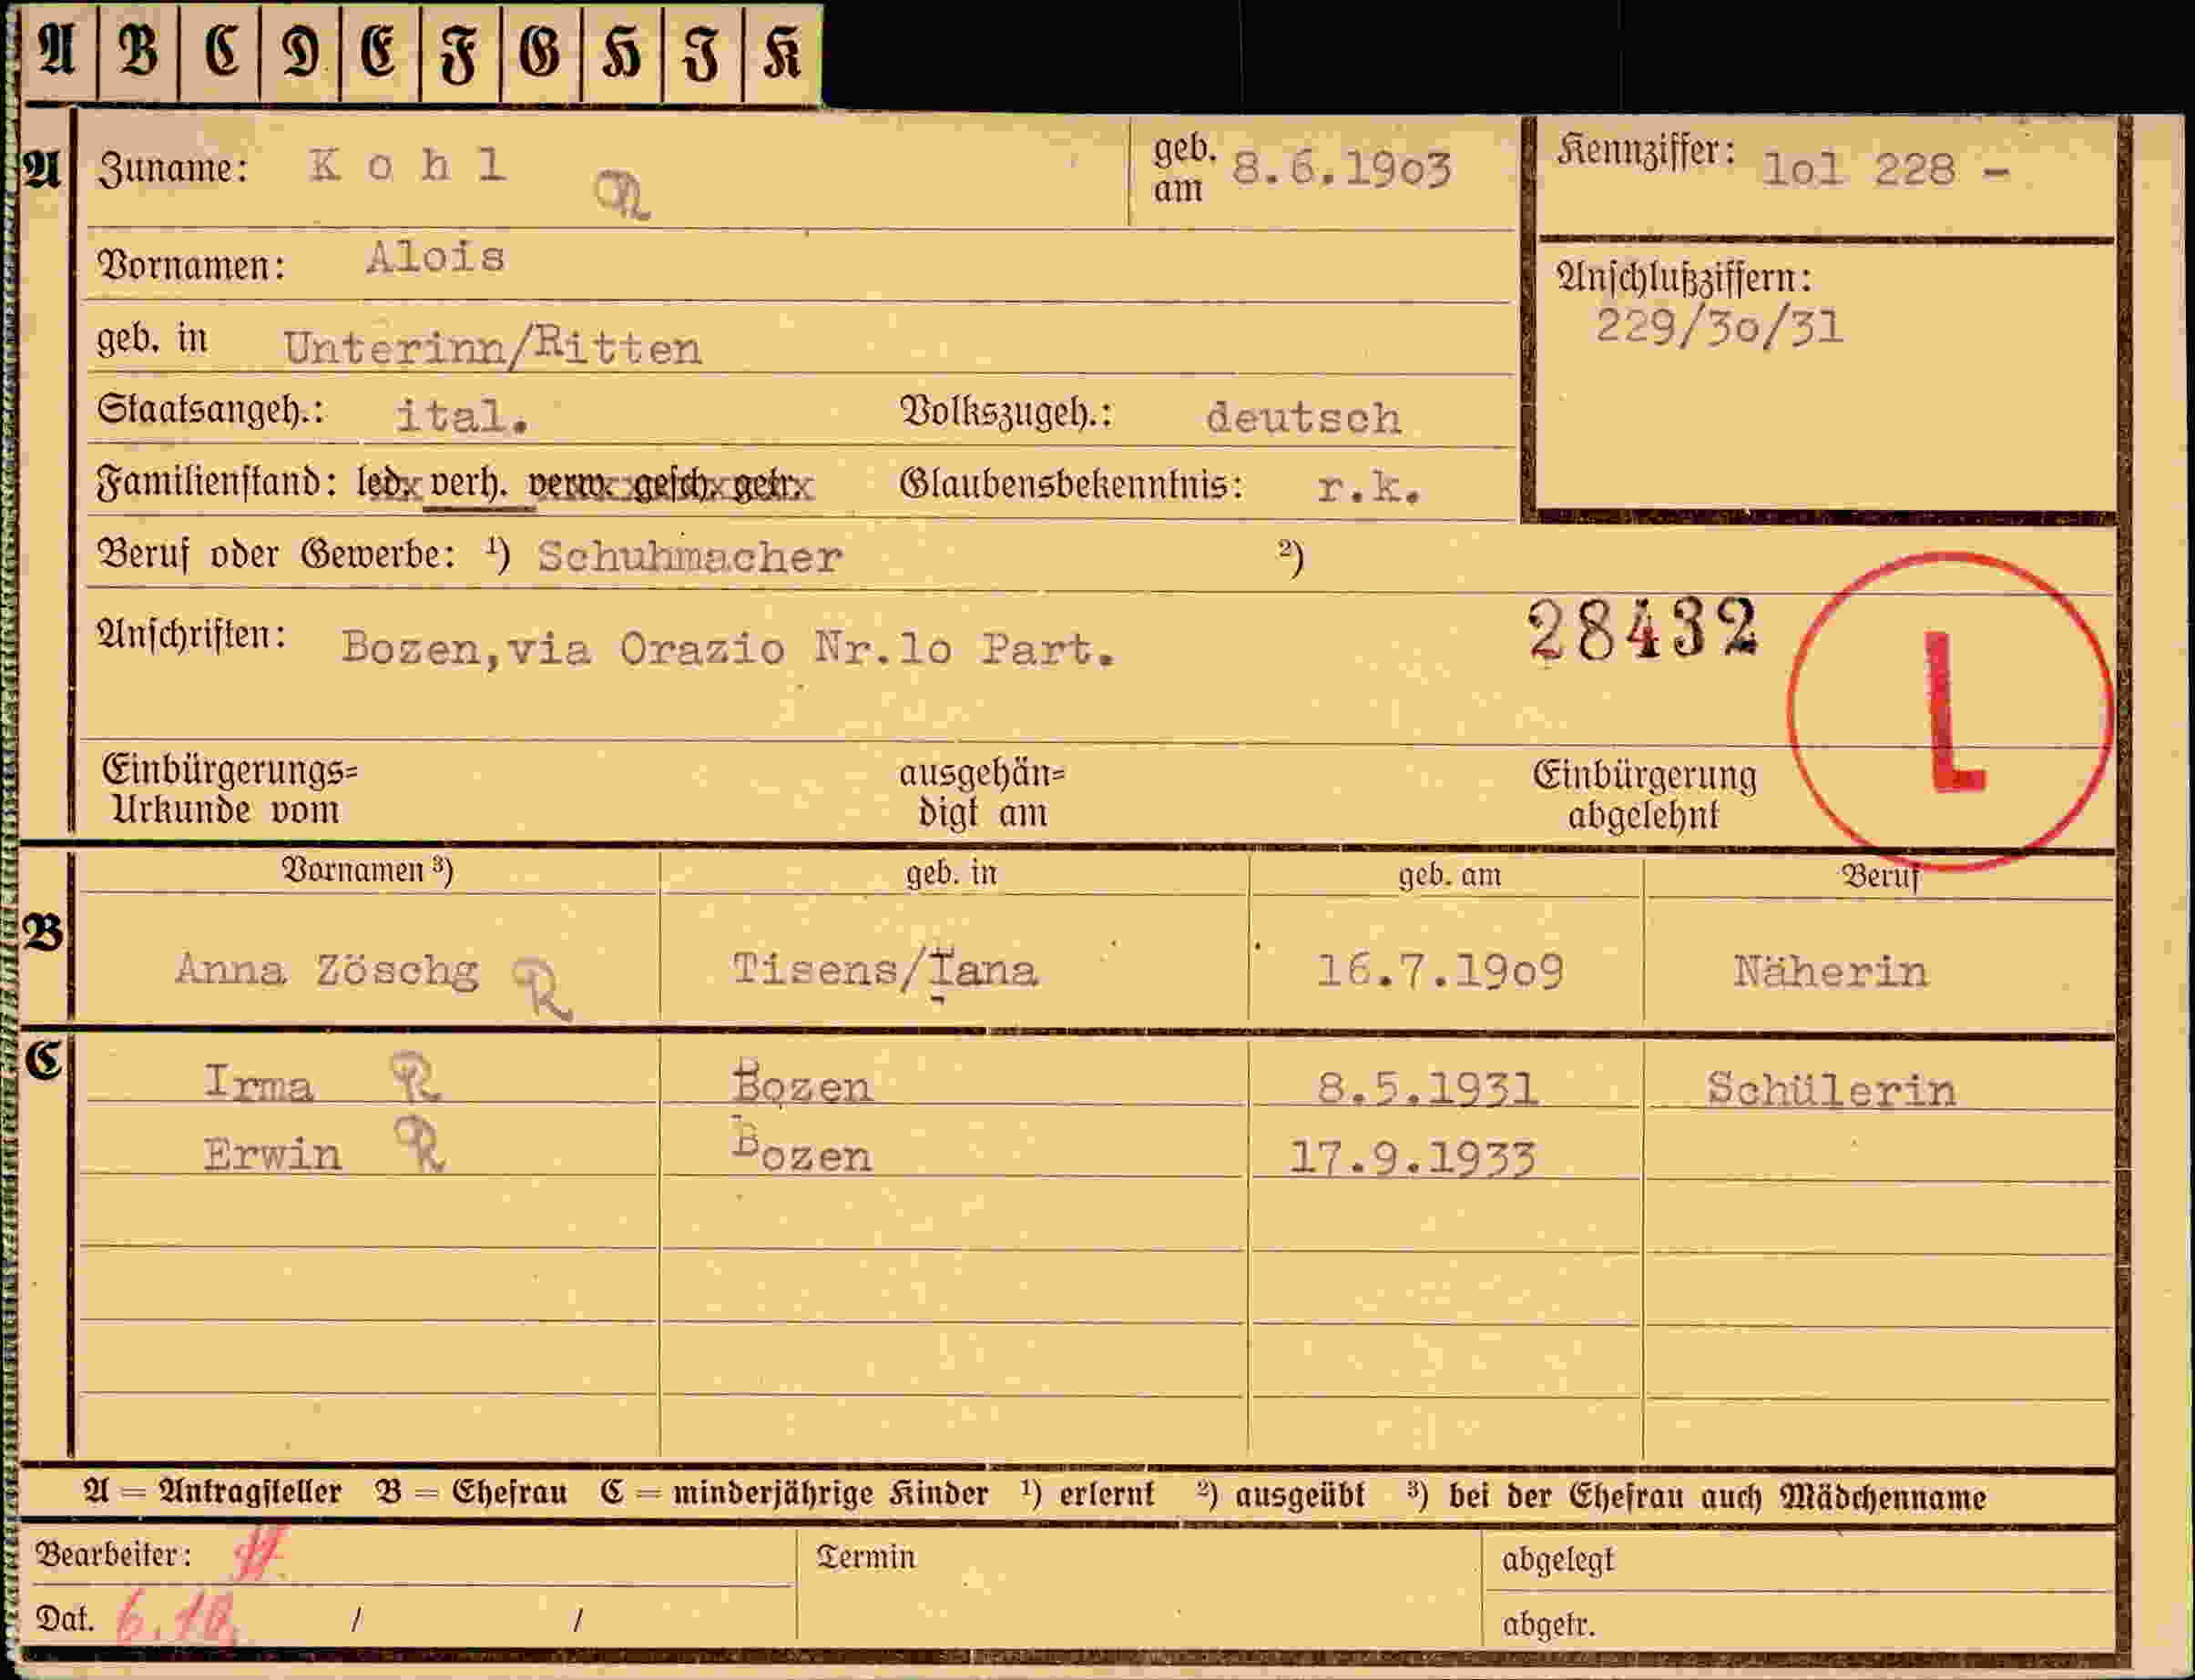 A B C D E F G H I K
A Zuname: Kohl R geb. am 8.6.19o3 Kennziffer: lol 228 -
Vornamen: Alois Anschlußziffern:
229/3o/31
geb. in Unterinn/Ritten
Staatsangeh.: ital. Volkszugeh.: deutsch
Familienstand: led. verh. verw. gesch. getr. Glaubensbekenntnis: r.k.
Beruf oder Gewerbe: ¹) Schuhmacher ²)
Anschriften: Bozen,via Orazio Nr.lo Part. 28432 L
Einbürgerungs= ausgehän= Einbürgerung
Urkunde vom digt am abgelehnt
Vornamen ³) geb. in geb. am Beruf
B Anna Zöschg R Tisens/Tana 16.7.19o9 Näherin
C Irma R Bozen 8.5.1931 Schülerin
Erwin R Bozen 17.9.1933
A = Antragsteller B = Ehefrau C = minderjährige Kinder ¹) erlernt ²) ausgeübt ³) bei der Ehefrau auch Mädchenname
Bearbeiter: Termin abgelegt
Dat. / / abgetr.